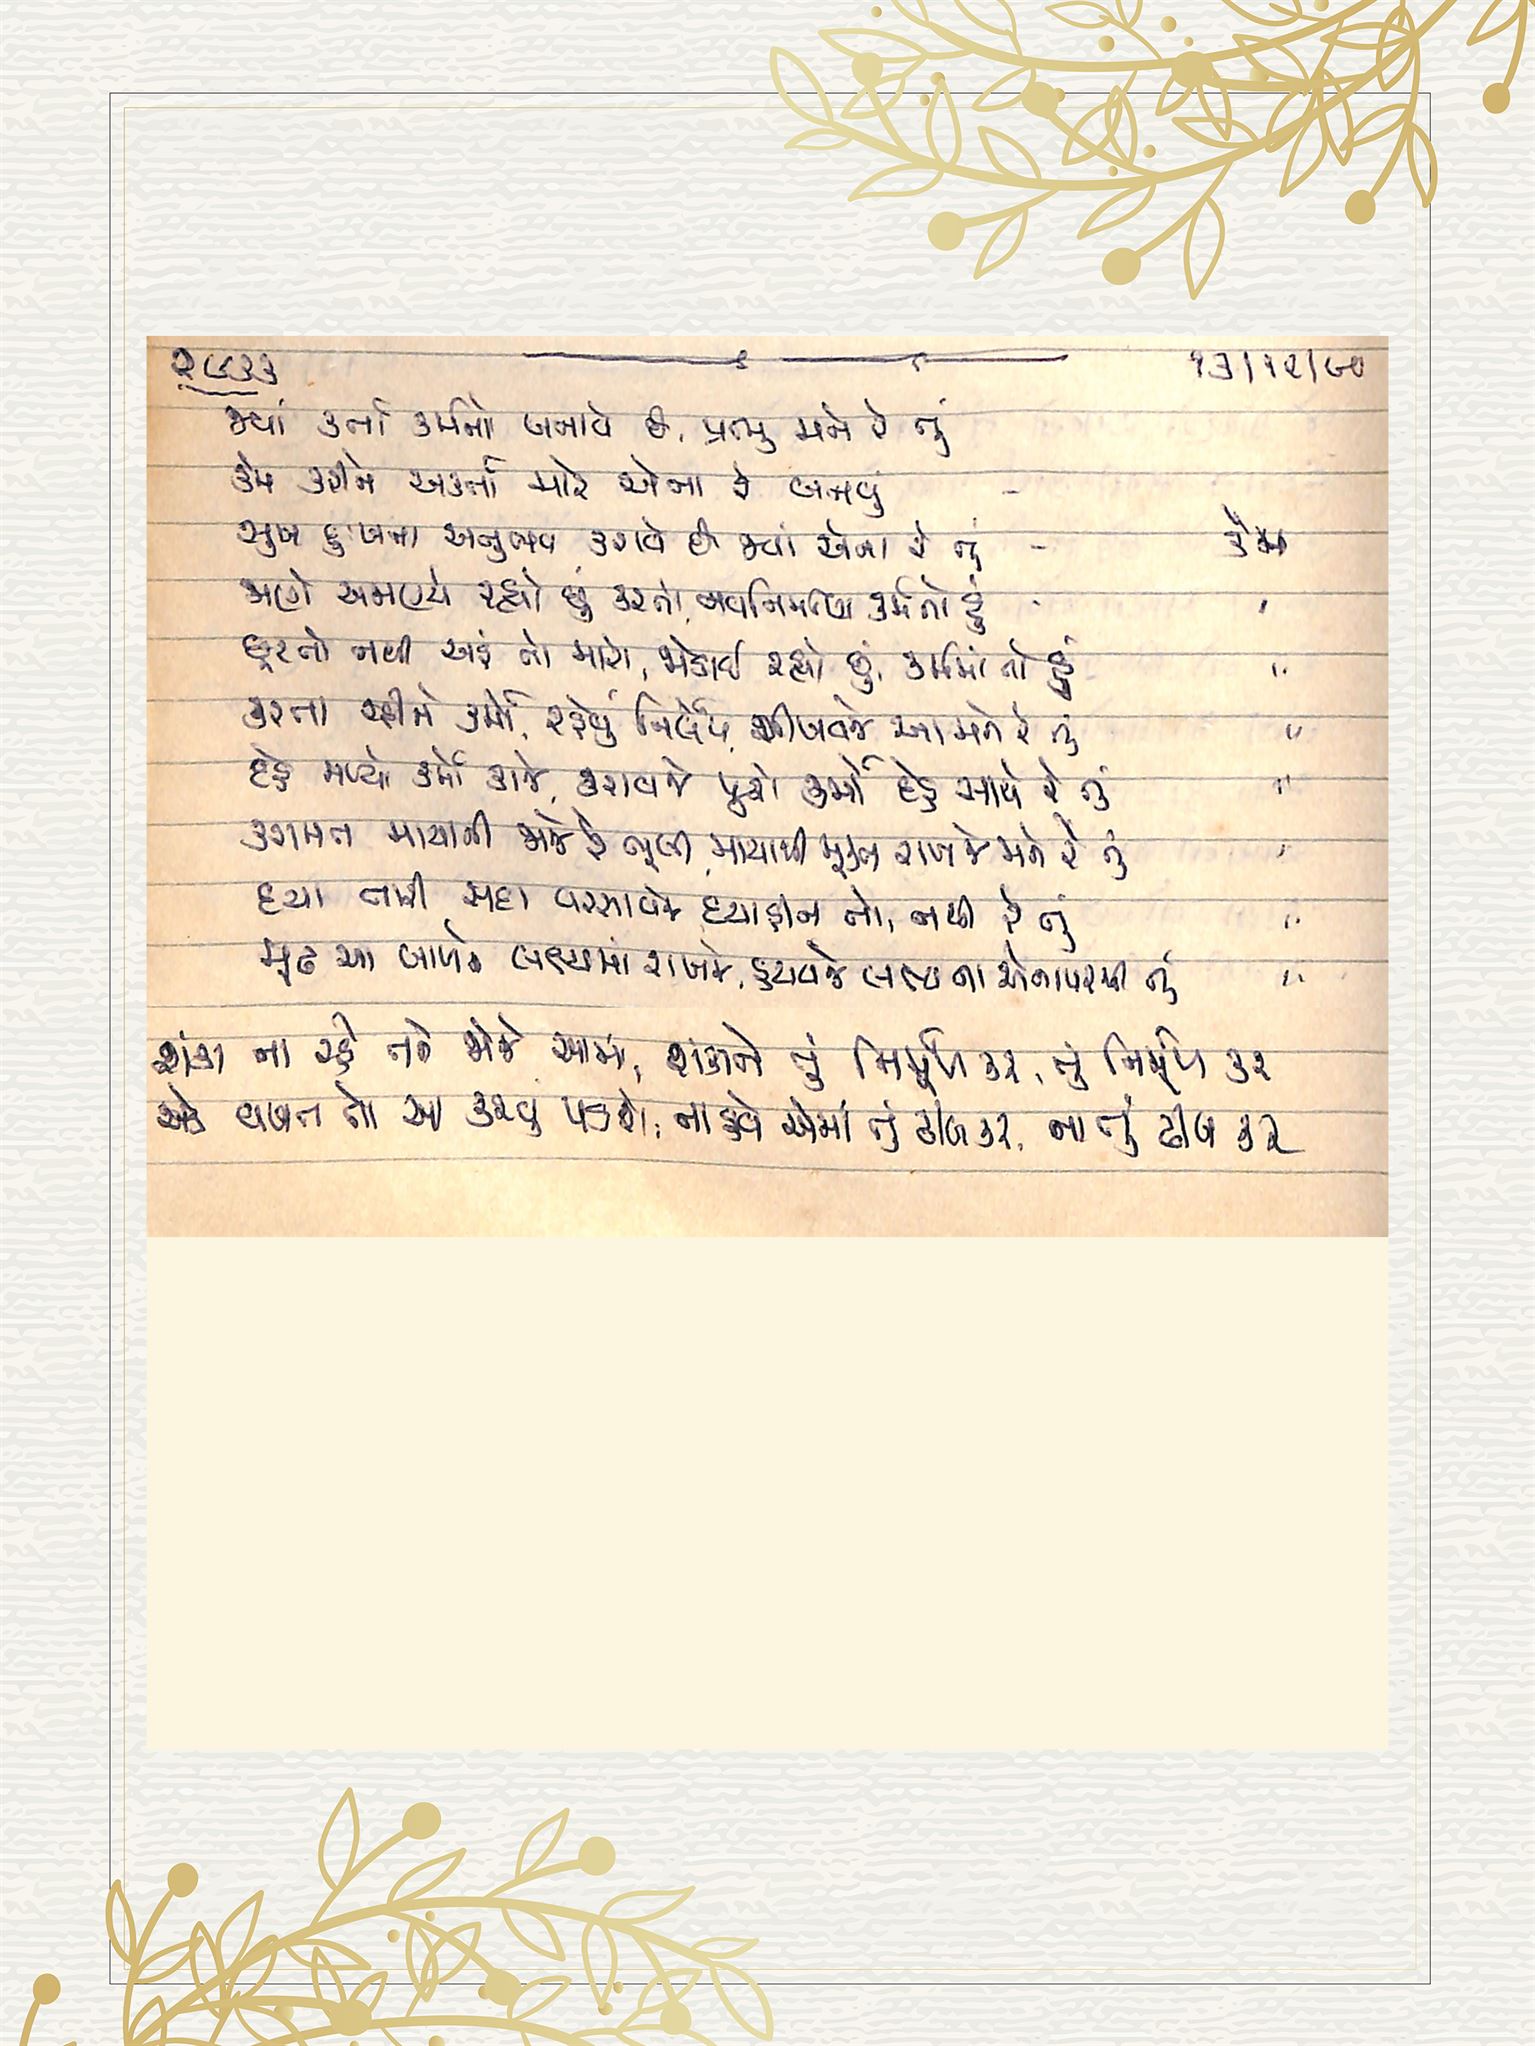 ૨૯૩૩ ૧૩/૧૨/૯૦
જ્યાં કર્તા કર્મનો બનાવે છે, પ્રભુ મને રે તું
કેમ કરીને અકર્તા મારે એના રે બનવું -
સુખ દુઃખના અનુભવ કરાવે છે જ્યાં એના રે તું - કેમ
જાણે અજાણ્યે રહ્યો છું કરતો, નવનિર્માણ કર્મનો હું "
છૂટતો નથી અહં તો મારો, જોડાઈ રહ્યો છું, કર્મમાં તો હું "
કરતા રહીને કર્મો, રહેવું નિર્લેપ, શીખવજે આ મને રે તું "
દેહ મળ્યો કર્મો કાજે, કરાવજે પૂરા કર્મો દેહ સાથે રે તું "
કરામત માયાની જોજે રે ભૂલી, માયાથી મુક્ત રાખજે મને રે તું "
દયા તારી સદા વરસાવજે, દયાહીન તો, નથી રે તું "
મૂઢ આ બાળને લક્ષ્યમાં રાખજે, હટાવજે લક્ષ્ય ના એનાપરથી તું "
શંકા ના રહે તને જોજે આમાં, શંકાને તું નિર્મૂળ કર, તું નિર્મૂળ કર
એક વખત તો આ કરવું પડશે, ના હવે એમાં તું ઢીલ કર, ના તું ઢીલ કર